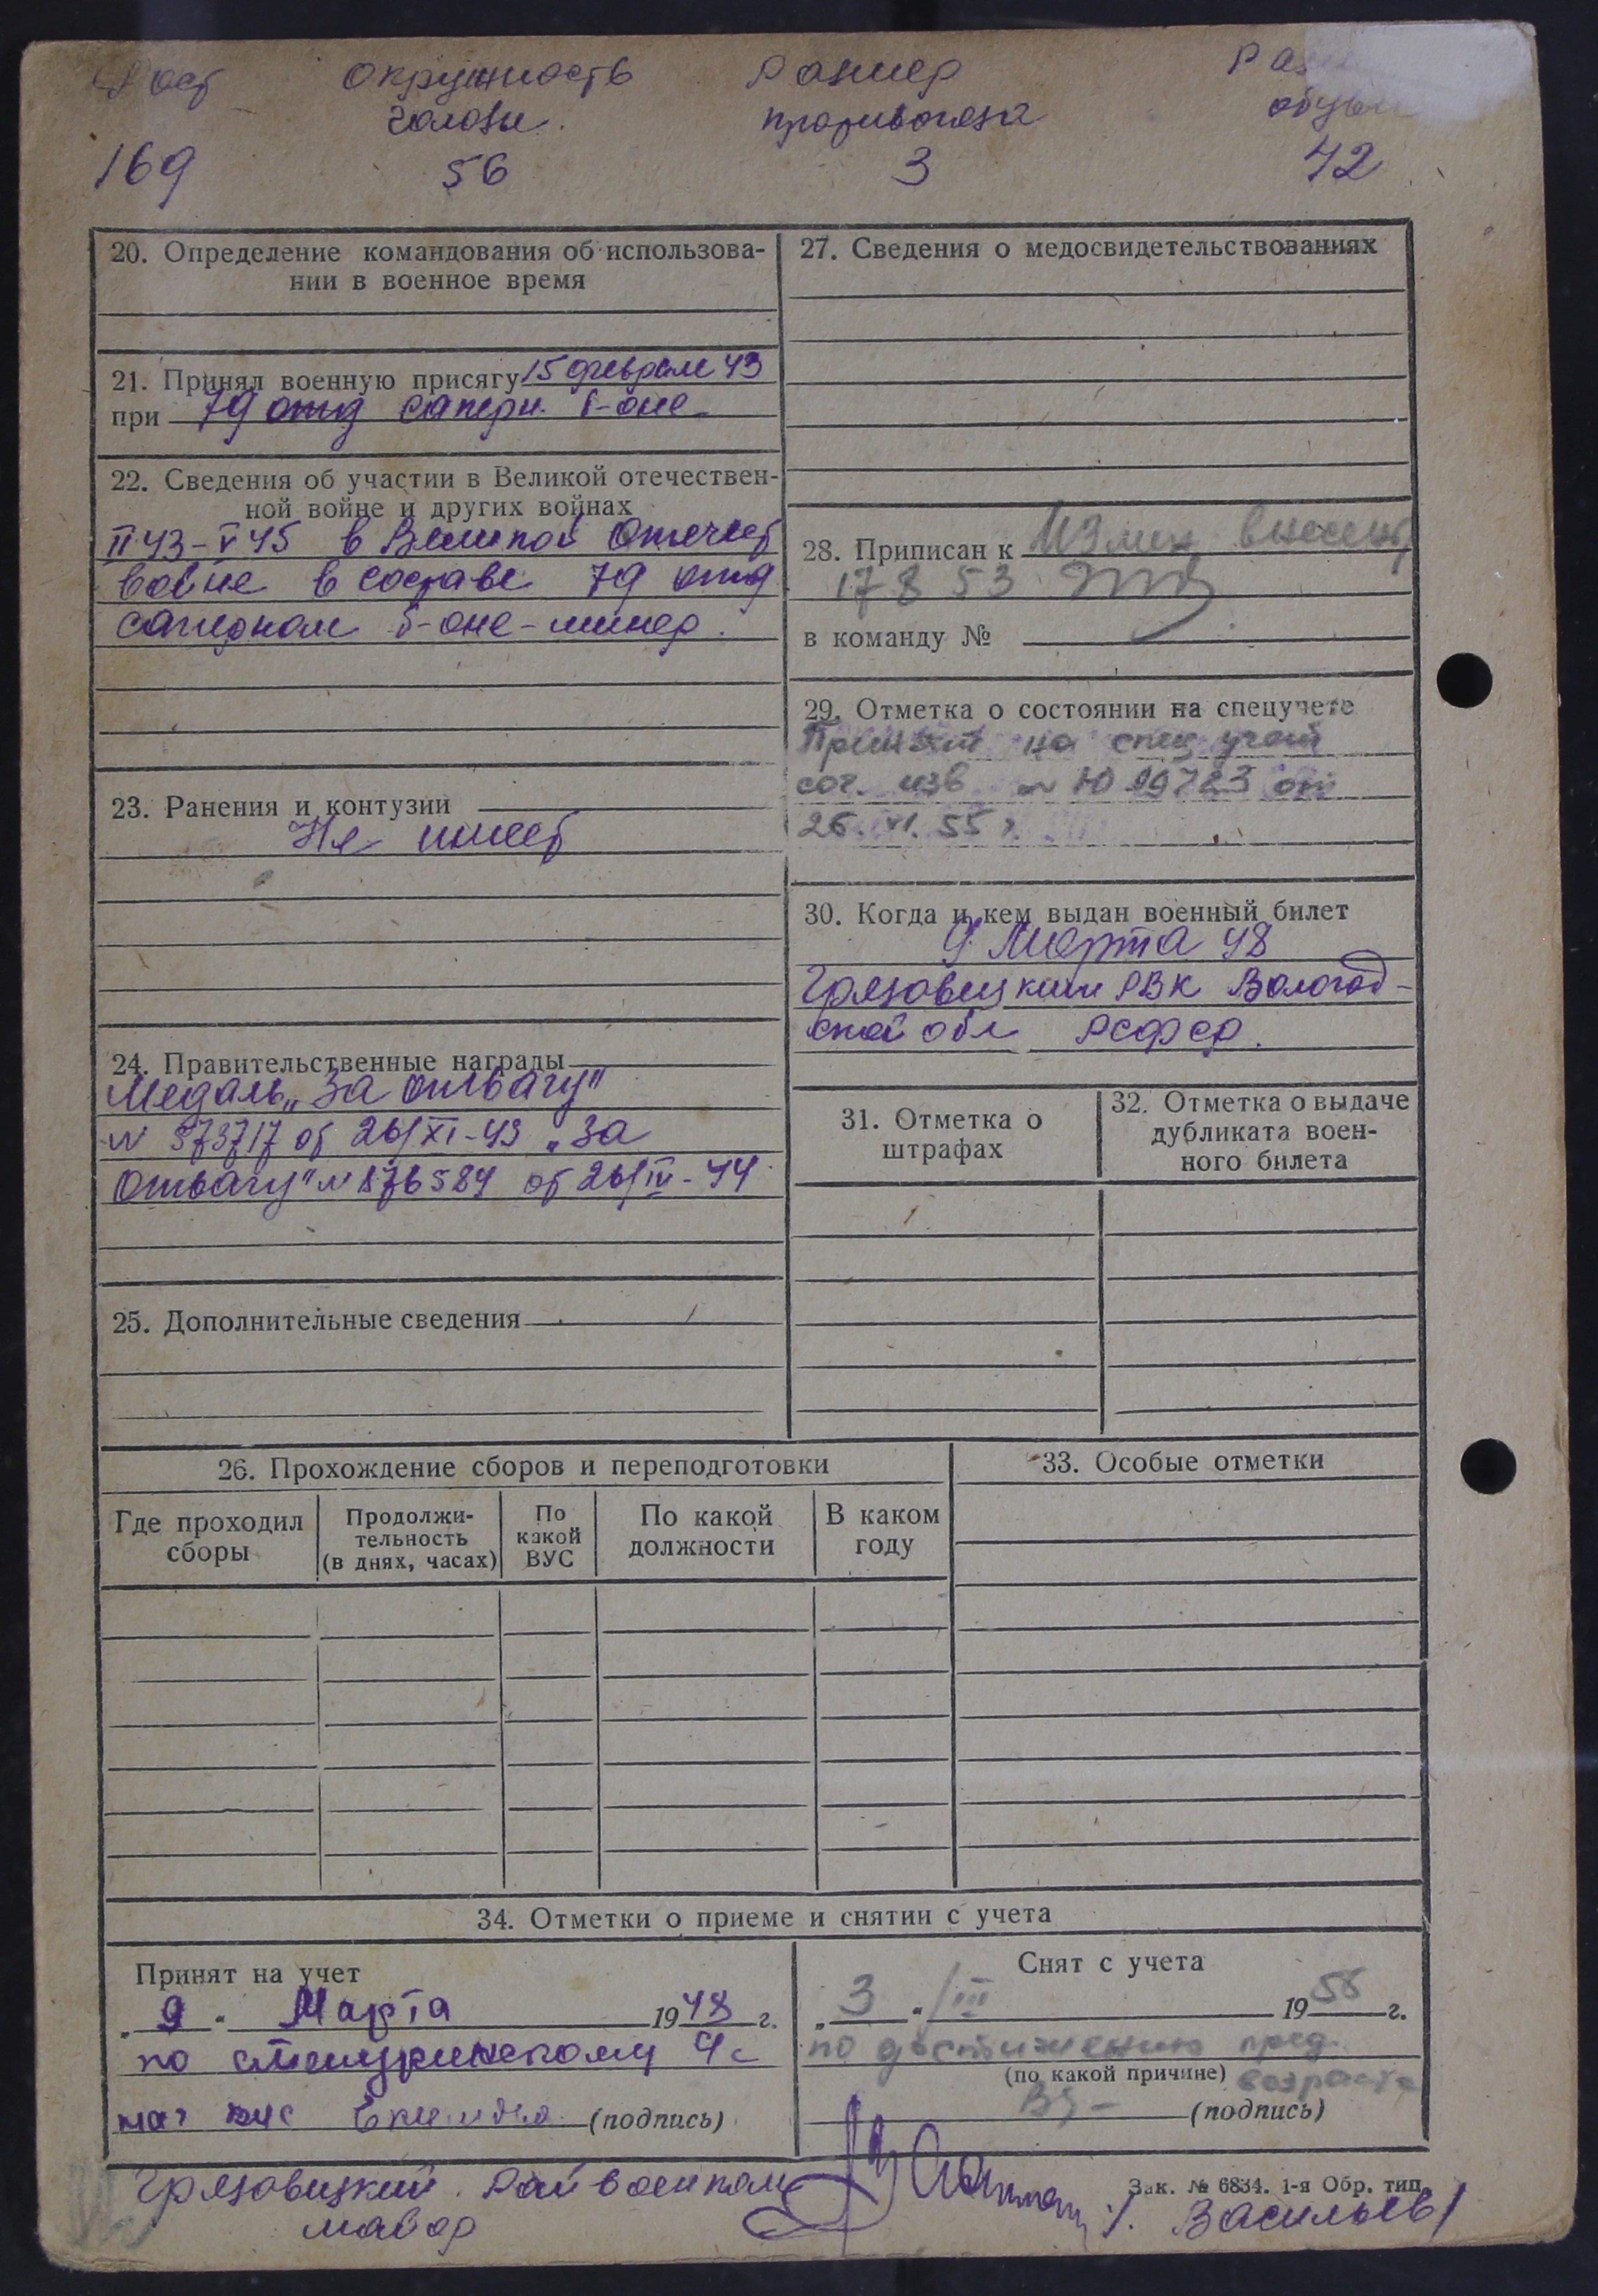 Рост Окружность головы. Размер противогаза
обуви
169 56 3 42
20. Определение командования об использова-
нии в военное время
21. Принял военную присягу 15 феврале 43
при 79 отд саперн. б-оне
22. Сведения об участии в Великой отечествен-
ной войне и других войнах
II 43 - V 45 в Великой Отечест
войне в составе 79 отд
саперном б-оне - минер.
23. Ранения и контузии
Не имеет
24. Правительственные награды
Медаль „За отвагу"
от 26/XI-43 „За
Отвагу" от 26/III-44
25. Дополнительные сведения
26. Прохождение сборов и переподготовки
Где проходил сборы
Продолжи-
тельность
(в днях, часах)
По какой ВУС
По какой должности
В каком году
27. Сведения о медосвидетельствованиях
28. Приписан к Измен внесены
17 8 53
в команду №
29. Отметка о состоянии на спецучете
Принят на спец учет
30. Когда и кем выдан военный билет
9 Марта 48
Грязовецким РВК Вологод-
ской обл РСФСР.
31. Отметка о
штрафах
32. Отметка о выдаче
дубликата воен-
ного билета
33. Особые отметки
34. Отметки о приеме и снятии с учета
Принят на учет
„ 9 " Марта 1948 г.
по
нач вус (подпись)
Снят с учета
„ 3 " III 19 г.
по достижению пред.
(по какой причине) возраста
(подпись)
Зак. № 6834. 1-я Обр. тип.
Грязовецкий Райвоенком
майор
/Васильев/